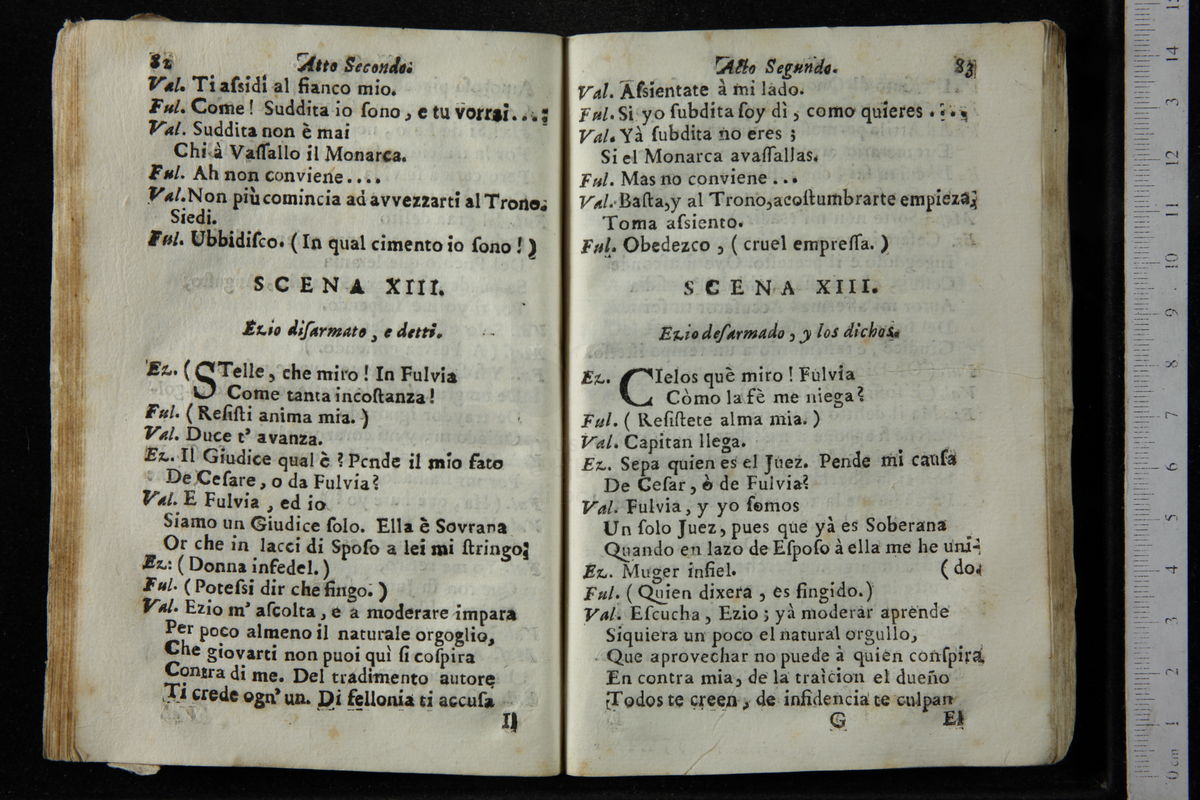 82 Atto Secondo.
Val. Ti aſsidi al fianco mio.
Ful. Come! Suddita io ſono, e tu vorrai....
Val. Suddita non è mai
Chi à Vaſſallo il Monarca.
Ful. Ah non conviene....
Val. Non più comincia ad avvezzarti al Trono.
Siedi.
Ful. Ubbidiſco. (In qual cimento io ſono!)
SCENA XIII.
Ezio diſarmato, e detti.
Ez. (STelle, che miro! In Fulvia
Come tanta incoſtanza!
Ful. (Reſiſti anima mia.)
Val. Duce t' avanza.
Ez. Il Giudice qual è? Pende il mio fato
De Ceſare, o da Fulvia?
Val. E Fulvia, ed io
Siamo un Giudice ſolo. Ella è Sovrana
Or che in lacci di Spoſo a lei mi ſtringo;
Ez: (Donna infedel.)
Ful. (Poteſsi dir che fingo.)
Val. Ezio m' aſcolta, e a moderare impara
Per poco almeno il naturale orgoglio,
Che giovarti non puoi quì ſi coſpira
Contra di me. Del tradimento autore
Ti crede ogn' un. Di fellonia ti accuſa
Il
Atto Segundo. 83
Val. Aſsientate à mi lado.
Ful. Si yo ſubdita ſoy dì, como quieres....
Val. Yà ſubdita no eres;
Si el Monarca avaſſallas.
Ful. Mas no conviene...
Val. Baſta, y al Trono, acoſtumbrarte empieza;
Toma aſsiento.
Ful. Obedezco, (cruel empreſſa.)
SCENA XIII.
Ezio deſarmado, y los dichos.
Ez. CIelos què miro! Fulvia
Còmo la fè me niega?
Ful. (Reſiſtete alma mia.)
Val. Capitan llega.
Ez. Sepa quien es el Juez. Pende mi cauſa
De Ceſar, ò de Fulvia?
Val. Fulvia, y yo ſomos
Un ſolo Juez, pues que yà es Soberana
Quando en lazo de Eſpoſo à ella me he uni-
Ez. Muger infiel. (do.
Ful. (Quien dixera, es fingido.)
Val. Eſcucha, Ezio; yà moderar aprende
Siquiera un poco el natural orgullo,
Que aprovechar no puede à quien conſpira
En contra mia, de la traicion el dueño
Todos te creen, de infidencia te culpan
G El
0 cm 1 2 3 4 5 6 7 8 9 10 11 12 3 14